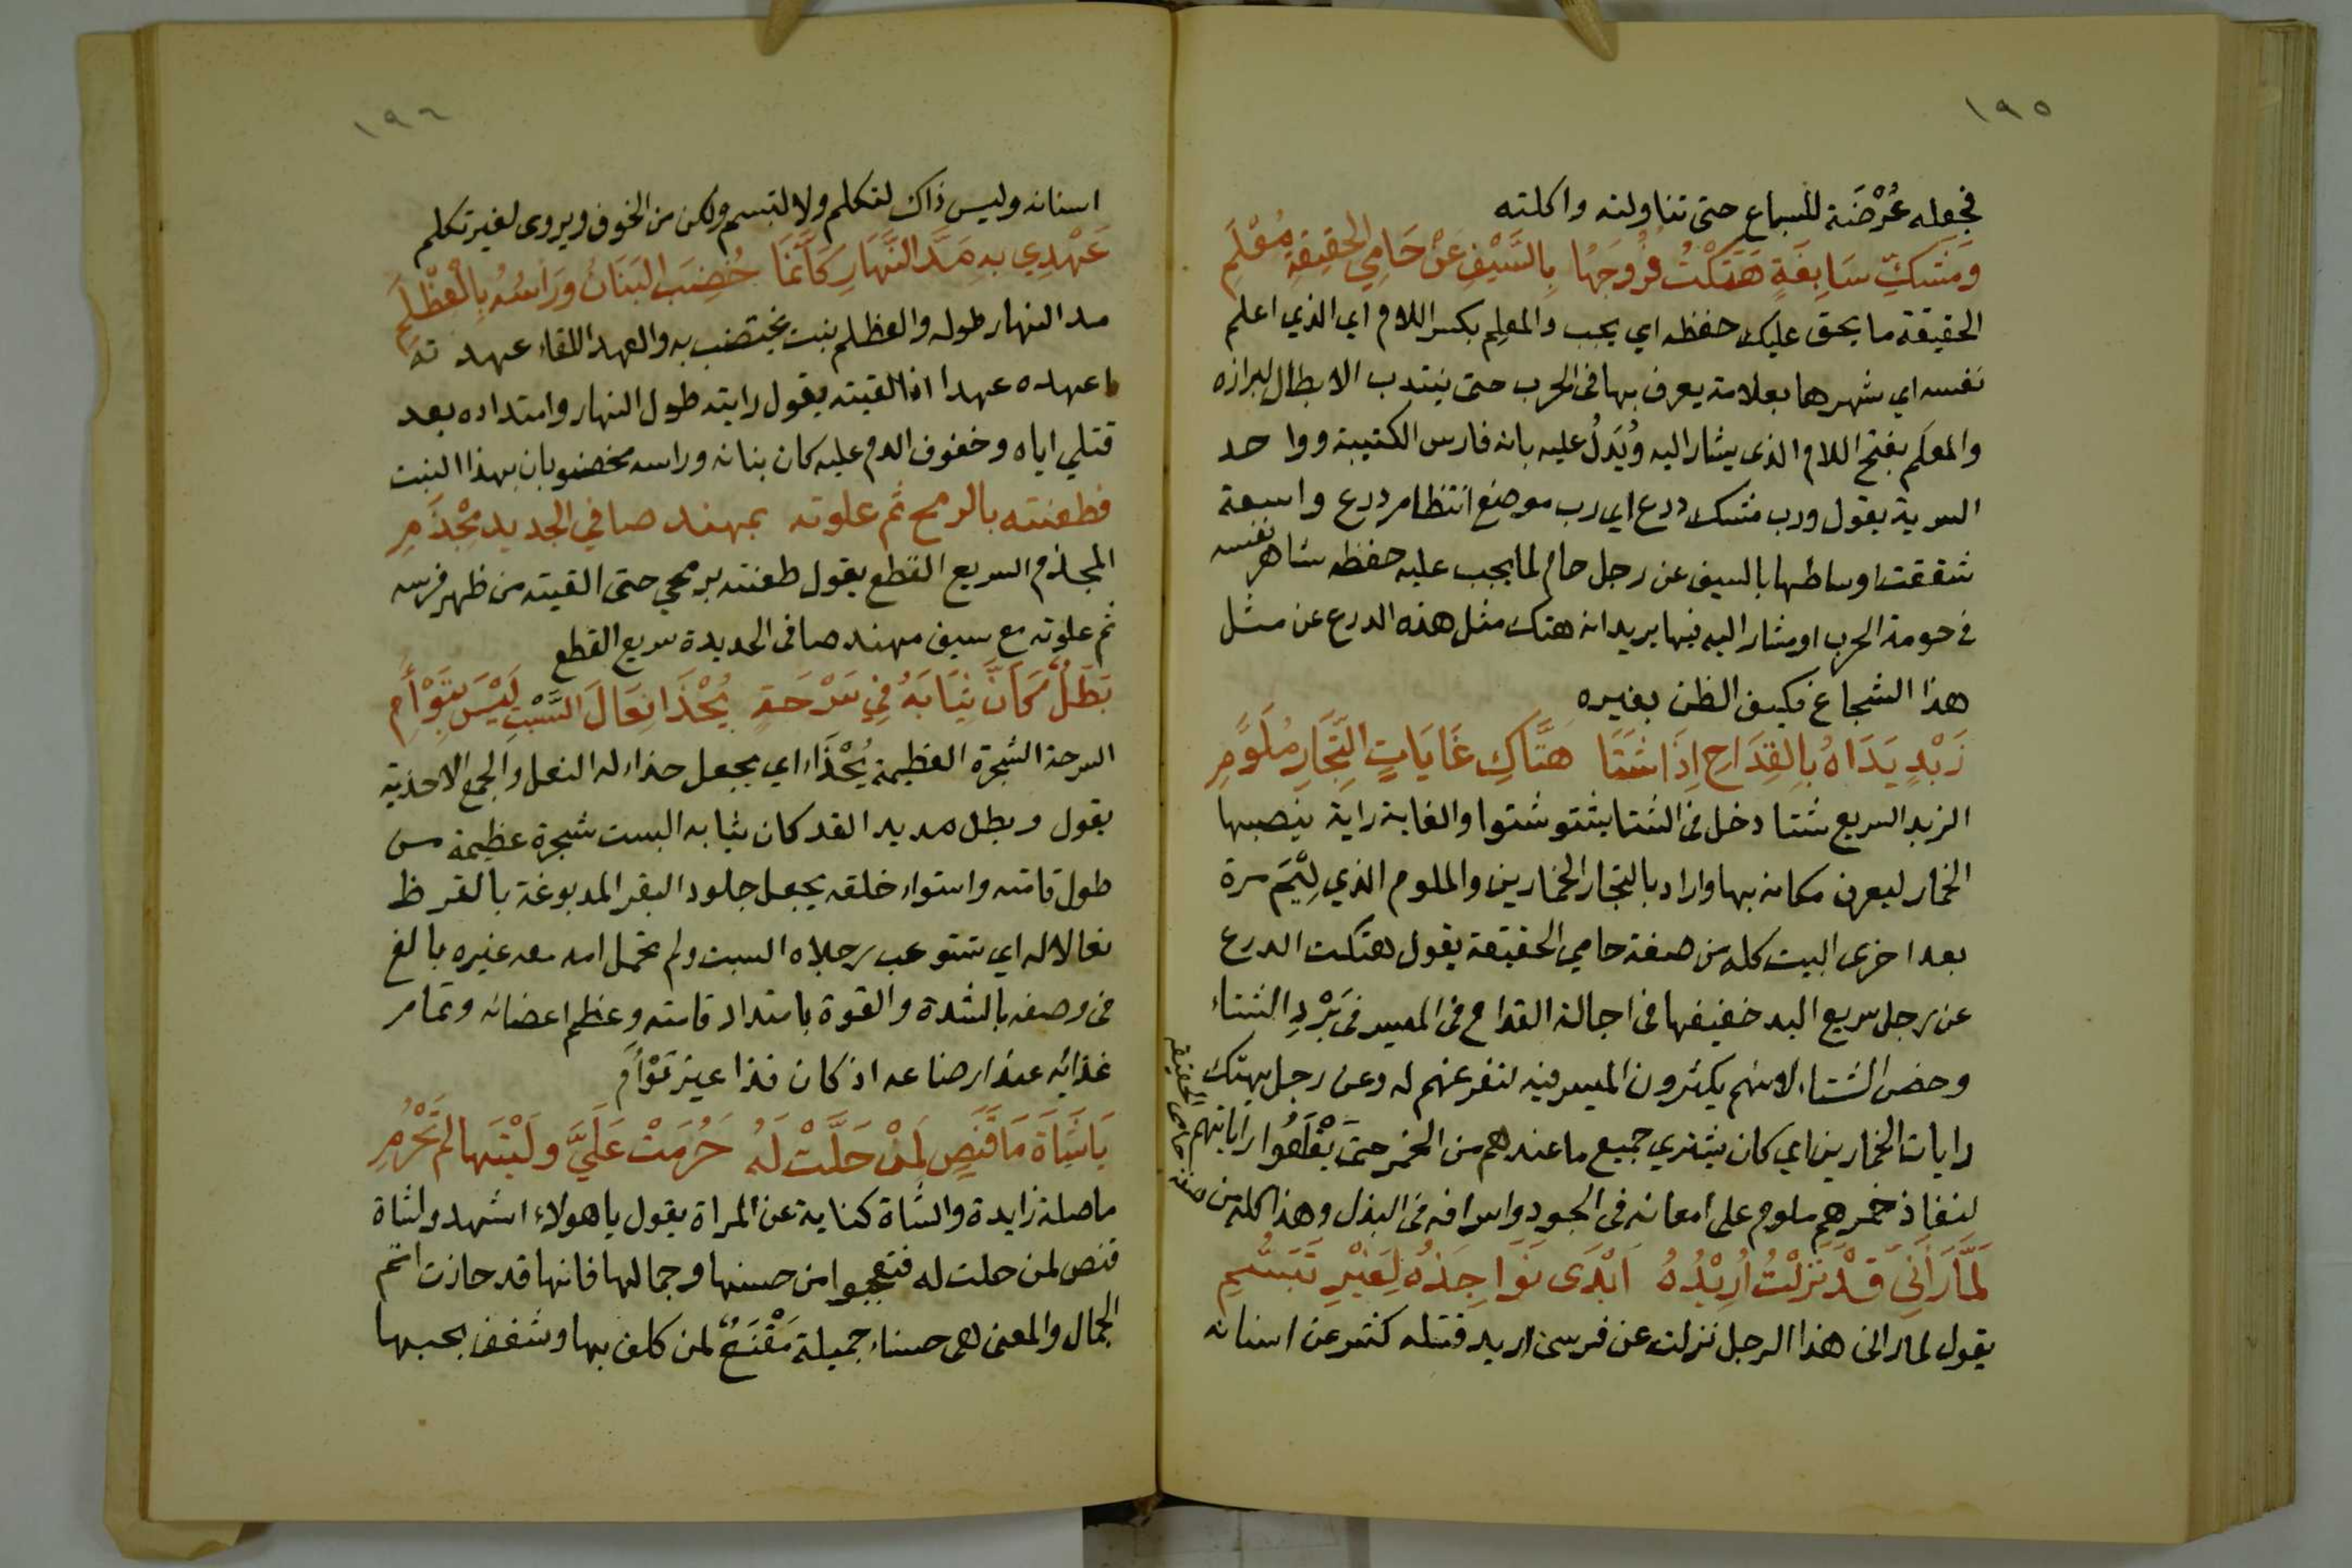 ١٩٥
فجعله عُرْضَة للسباع حتى تناولته واكلته
وَمَشَكِّ سَابِغَةٍ هَتَكْتُ فُرُوجَهَا بِالسَّيْفِ عَنْ حَامِي الحَقِيقَةِ مُعْلَمِ
الحقيقة ما يحق عليك حفظه اي يجب والمعلِم بكسر اللام اي الذي اعلم
نفسه اي شهرها بعلامة يعرف بها فى الحرب حتى ينتدب الابطال لبرازه
والمعلَم بفتح اللام الذى يشار اليه ويُدَلُ عليه بانه فارس الكتيبة وواحد
السرية يقول ورب مشك درع اى رب موضع انتظام درع واسعة
شققت اوساطها بالسيف عن رجل حام لما يجب عليه حفظه شاهر نفسه
فى حومة الحرب او مشار اليه فيها يريد انه هتك مثل هذه الدرع عن مثل
هذا الشجاع فكيف الظن بغيره
زَبْدٍ يَدَاهُ بِالقِدَاحِ إِذَا شَتَا هَتَّاكِ غَايَاتِ التِّجَارِ مُلَوَّمِ
الزبد السريع شتا دخل فى الشتا يشتو شتوا والغاية راية ينصبها
الخمار ليعرف مكانه بها واراد بالتجار الخمارين والملوم الذي لِيْمَ مرة
بعد اخرى البيت كله من صفة حامي الحقيقة يقول هتكت الدرع
عن رجل سريع اليد خفيفها فى اجالة القداح فى الميسر فى بَرْدِ الشتاء
وخص الشتاء لانهم يكثرون الميسر فيه لتفرغهم له وعن رجل يهتك
رايات الخمارين اي كان يشتري جميع ما عندهم من الخمر حتى يَقْلَعُوا راياتهم
لنفاذ خمرهم ملوم على امعانه فى الجود واسرافه فى البذل وهذا كله من صفة حامى الحقيقة
لَمَّا رَأَنِى قَدْ نَزَلْتُ أُرِيْدُهُ اَبْدَى نَوَاجِذَهُ لِغَيْرِ تَبَسُّمِ
يقول لما رانى هذا الرجل نزلت عن فرسى اريد قتله كشر عن اسنانه
١٩٦
اسنانه وليس ذاك لتكلم ولا لتبسم ولكن من الخوف ويروى لغير تكلم
عَهْدِي بِهِ مَدَّ النَّهَارِ كَأَنَّمَا خُضِبَ البَنَانُ وَرَاسُهُ بِالْعِظْلِمِ
مد النهار طوله والعظلم نبت يختضب به والعهد اللقاء عهدته
اعهده عهدا اذا لقيته يقول رايته طول النهار وامتداده بعد
قتلي اياه وخفوف الدم عليه كان بنانه وراسه مخضوبان بهذا النبت
فطعنته بالرمح ثم علوته بمهند صافي الحديد مِخْذَمِ
المخذم السريع القطع يقول طعنته برمحي حتى القيته من ظهر فرسه
ثم علوته مع سيف مهند صافى الحديدة سريع القطع
بَطَلٌ كَأَنَّ ثِيَابَهُ فِي سَرْحَةٍ يُحْذَا نِعَالَ السَّبْتِ لَيْسَ بِتَوْأَمِ
السرحة الشجرة العظيمة يُحْذَاء اي يجعل حذاء له النعل والجمع الاحذية
يقول وبطل مديد القد كان ثيابه البست شجرة عظيمة من
طول قامته واستواء خلقه يجعل جلود البقر المدبوغة بالقرظ
نعالا له اي تستوعب رجلاه السبت ولم تحمل امه معه غيره بالغ
فى وصفه بالشدة والقوة بامتداد قامته وعظم اعضائه وتمام
غذائه عند ارضاعه اذ كان فذا غير تَوْأَم
يَا شَاةَ مَا قَنَصٍ لِمَنْ حَلَّتْ لَهُ حَرُمَتْ عَلَيَّ وَلَيْتَهَا لَمْ تَحْرُمِ
ما صلة زايدة والشاة كناية عن المراة يقول يا هولاء اشهدوا شاة
قنص لمن حلت له فتعجبوا من حسنها وجمالها فانها قد حازت اتم
الجمال والمعنى هى حسناء جميلة مَقْنَعٌ لمن كلف بها وشغف بحبها